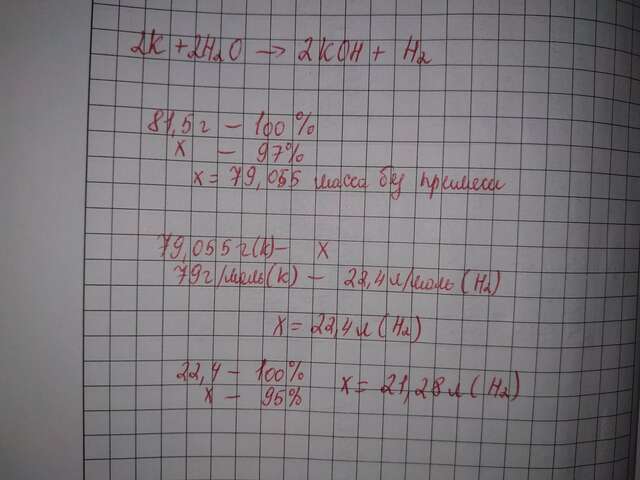 2K + 2H₂O → 2KOH + H₂
81,5 г – 100%
x – 97%
x = 79,055 масса без примеси
79,055 г (K) – x
79 г/моль (K) – 22,4 л/моль (H₂)
x = 22,4 л (H₂)
22,4 – 100%
x – 95% x = 21,28 л (H₂)